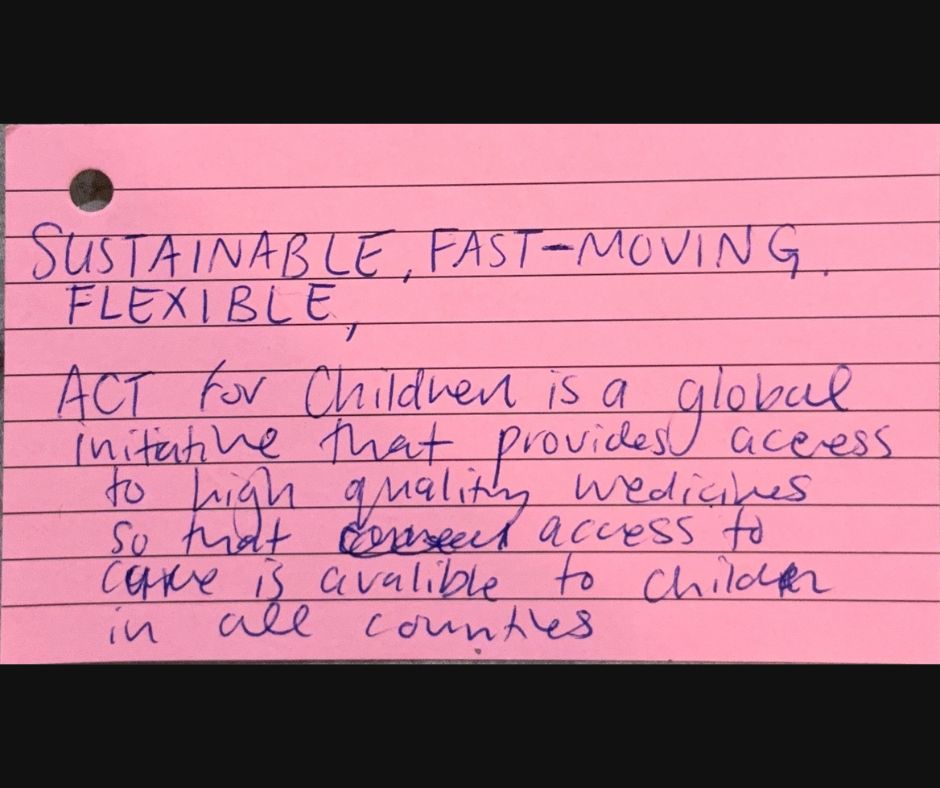 SUSTAINABLE, FAST-MOVING.
FLEXIBLE,
ACT for Children is a global
initative that provides access
to high quality medicines
so that access to
care is avalible to childen
in all counties